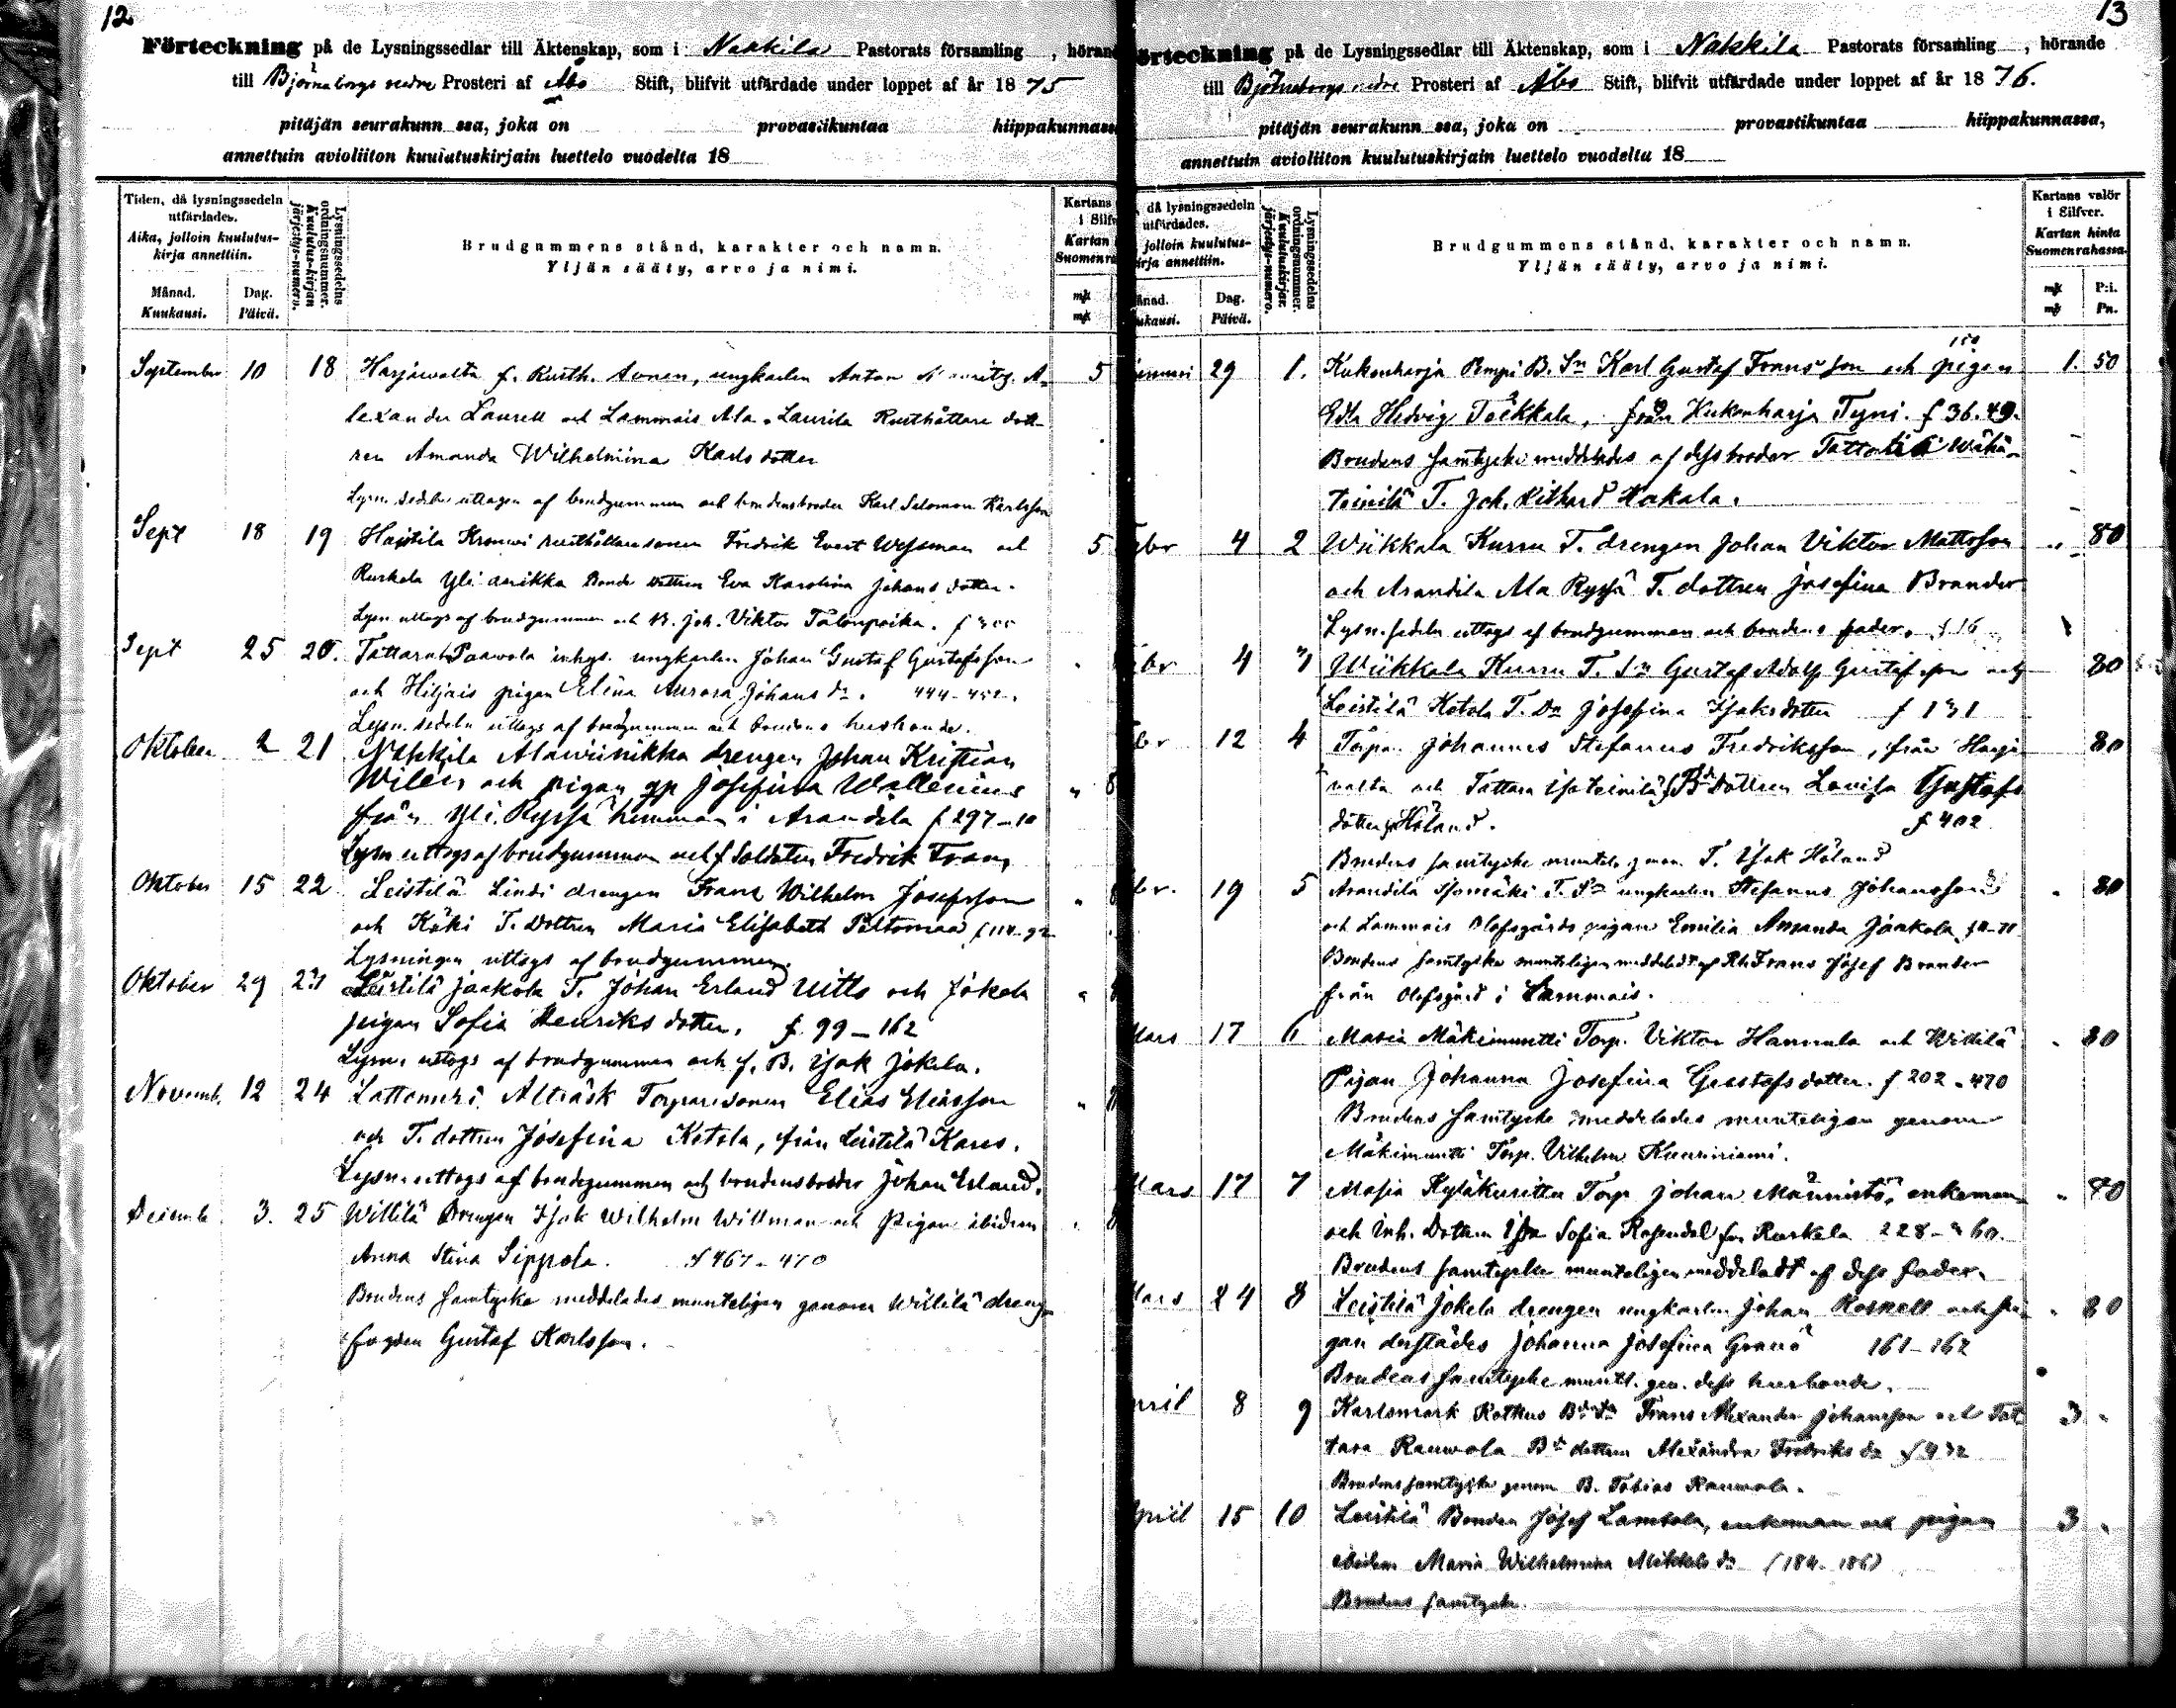 12
Förteckning på de Lysningssedlar till Äktenskap, som i Nakkila Pastorats församling , hörande
till Björneborgs nedre Prosteri af Åbo Stift, blifvit utfärdade under loppet af år 1875
pitäjän seurakunn ssa, joka on provastikuntaa hiippakunnassa
annettuin avioliiton kuulutuskirjain luettelo vuodelta 18
Tiden, då lysningssedeln utfärdades.
Aika, jolloin kuulutus-kirja annettiin.
Månad. Kuukausi.
Dag. Päivä.
Lysningssedelns ordningsnummer. Kuulutus-kirjan järjestys-numero.
Brudgummens stånd, karakter och namn.
Yljän sääty, arvo ja nimi.
Kartans
i Silfv
Kartan
Suomenra
mk
mk
September 10 18 Harjawalta f. Rusth. sonen, ungkarlen Anton Mauritz A- 5
lexander Laurell och Lammais Ala-Laurila Rusthållare dott-
ren Amanda Wilhelmina Karlsdotter
Lysn. sedeln uttagen af brudgummen och brudens broder Karl Salomon Karlsson
Sept 18 19 Haistila Krouwi rusthållaresonen Fredrik Evert Wessman och 5
Ruskala Yli Bonde dottren Eva Karolina Johansdotter.
Lysn uttogs af brudgummen och B. Joh. Viktor Talonpoika.
Sept 25 20. Tattara Paavola inhys. ungkarlen Johan Gustaf Gustafsson
och Hiljais pigan Elina Aurora Johans dr. 444-452.
Lysn. sedeln uttogs af brudgummen och brudens husbonde.
Oktober 2 21 Nakkila Alawiinikka drengen Johan Kristian
Wilen och pigan Josefina Wallenius " 8
från Yli Ryssä hemman i Arandila f 297-10
Lysn uttogs af brudgummen och f Soldaten Fredrik Fram,
Oktober 15 22 Leistilä Lindi drengen Frans Wilhelm Josefsson "
och Käki T. Dottren Maria Elisabeth Peltomaa f 114-92
Lysningen uttogs af brudgummen.
Oktober 29 23 Leistilä Jaakola T. Johan Erland Uitto och Jokela "
pigan Sofia Henriksdotter, f. 99-162
Lysn. uttogs af brudgummen och f. B. Isak Jokela.
Novemb. 12 24 Lattomeri Alträsk Torparesonen Elias Eliasson "
och T. dottren Josefina Ketola, från Leistilä Kares.
Lysn. uttogs af brudgummen och brudens broder Johan Erland.
Decemb 3. 25 Willilä Drengen Isak Wilhelm Willman och Pigan ibidem
Anna Stina Sippola. f 467-470
Brudens samtycke meddelades munteligen genom Willilä dreng-
fogden Gustaf Karlsson.
13
Förteckning på de Lysningssedlar till Äktenskap, som i Nakkila Pastorats församling , hörande
till Björneborgs nedre Prosteri af Åbo Stift, blifvit utfärdade under loppet af år 1876.
pitäjän seurakunn ssa, joka on provastikuntaa hiippakunnassa,
annettuin avioliiton kuulutuskirjain luettelo vuodelta 18
, då lysningssedeln utfärdades.
jolloin kuulutus-
irja annettiin.
ånad. ukausi.
Dag. Päivä.
Lysningssedelns ordningsnummer. Kuulutuskirjan järjestys-numero.
Brudgummens stånd, karakter och namn.
Yljän sääty, arvo ja nimi.
Kartans valör i Silfver.
Kartan hinta Suomenrahassa.
mk
mk
P:i.
Pn.
150
29 1. Kukonharja Pempi B. Sn Karl Gustaf Fransson och pigan 1. 50
Edla Hedvig Teikkala, från Kukonharja Tyni. f 36.49.
Brudens samtycke meddelades af dess broder Tattara Wähä-
teinilä T. Joh. Rikhard Hakala.
ebr 4 2 Wiikkala Kurru T. drengen Johan Viktor Mattsson " 80
och Arandila Ala Ryssä T. dottren Josefina Brander
Lysn. sedeln uttogs af brudgummen och brudens fader. f 16
ebr 4 3 Wiikkala Kurru T. Sn Gustaf Adolf Gustafsson och 80
Leistilä Ketola T. Dn Josefina Isaksdotter f 131
br 12 4 Torpar. Johannes Stefanus Fredriksson, från Harja- 80
valta och Tattara Isoteinilä Bd Dottren Lovisa Gustafs
dotter Höland. f 402
Brudens samtycke muntel. genom T. Isak Höland
br. 19 5 Arandila Isomäki T. Sn ungkarlen Stefanus Johansson " 80
och Lammais Olofsgårds pigan Emilia Amanda Jaakola
Brudens samtycke munteligen meddeladt af Rh Frans Josef Brander
från Olofsgård i Lammais.
Mars 17 6 Masia Mäkimuntti Torp. Viktor Hannula och Willilä " 80
Pigan Johanna Josefina Gustafsdotter. f 202-470
Brudens samtycke meddelades munteligen genom
Mäkimuntti Torp. Vilhelm Kuurinniemi.
Mars 17 7 Masia Kyläkuritta Torp Johan Männistö, enkeman " 80
och Inh. Dottren Sofia Rosendal fr Ruskala 228-
Brudens samtycke munteligen meddeladt af dess fader.
Mars 24 8 Leistilä Jokela drengen ungkarlen Johan Roskell och pi- " 80
gan derstädes Johanna Josefina Granö 161-162
Brudens samtycke muntl. gen. dess husbonde.
pril 8 9 Karlsmark Kotkus Frans Alexander Johansson och Tat- 3 "
tara Rauwola Bd dottren Alexandra Fredriks dr
Brudens samtycke genom B. Tobias Rauwola.
April 15 10 Leistilä Bonden Josef Lamtala, enkeman och pigan 3 "
ibidem Maria Wilhelmina Mikkels dr (184-186)
Brudens samtycke.